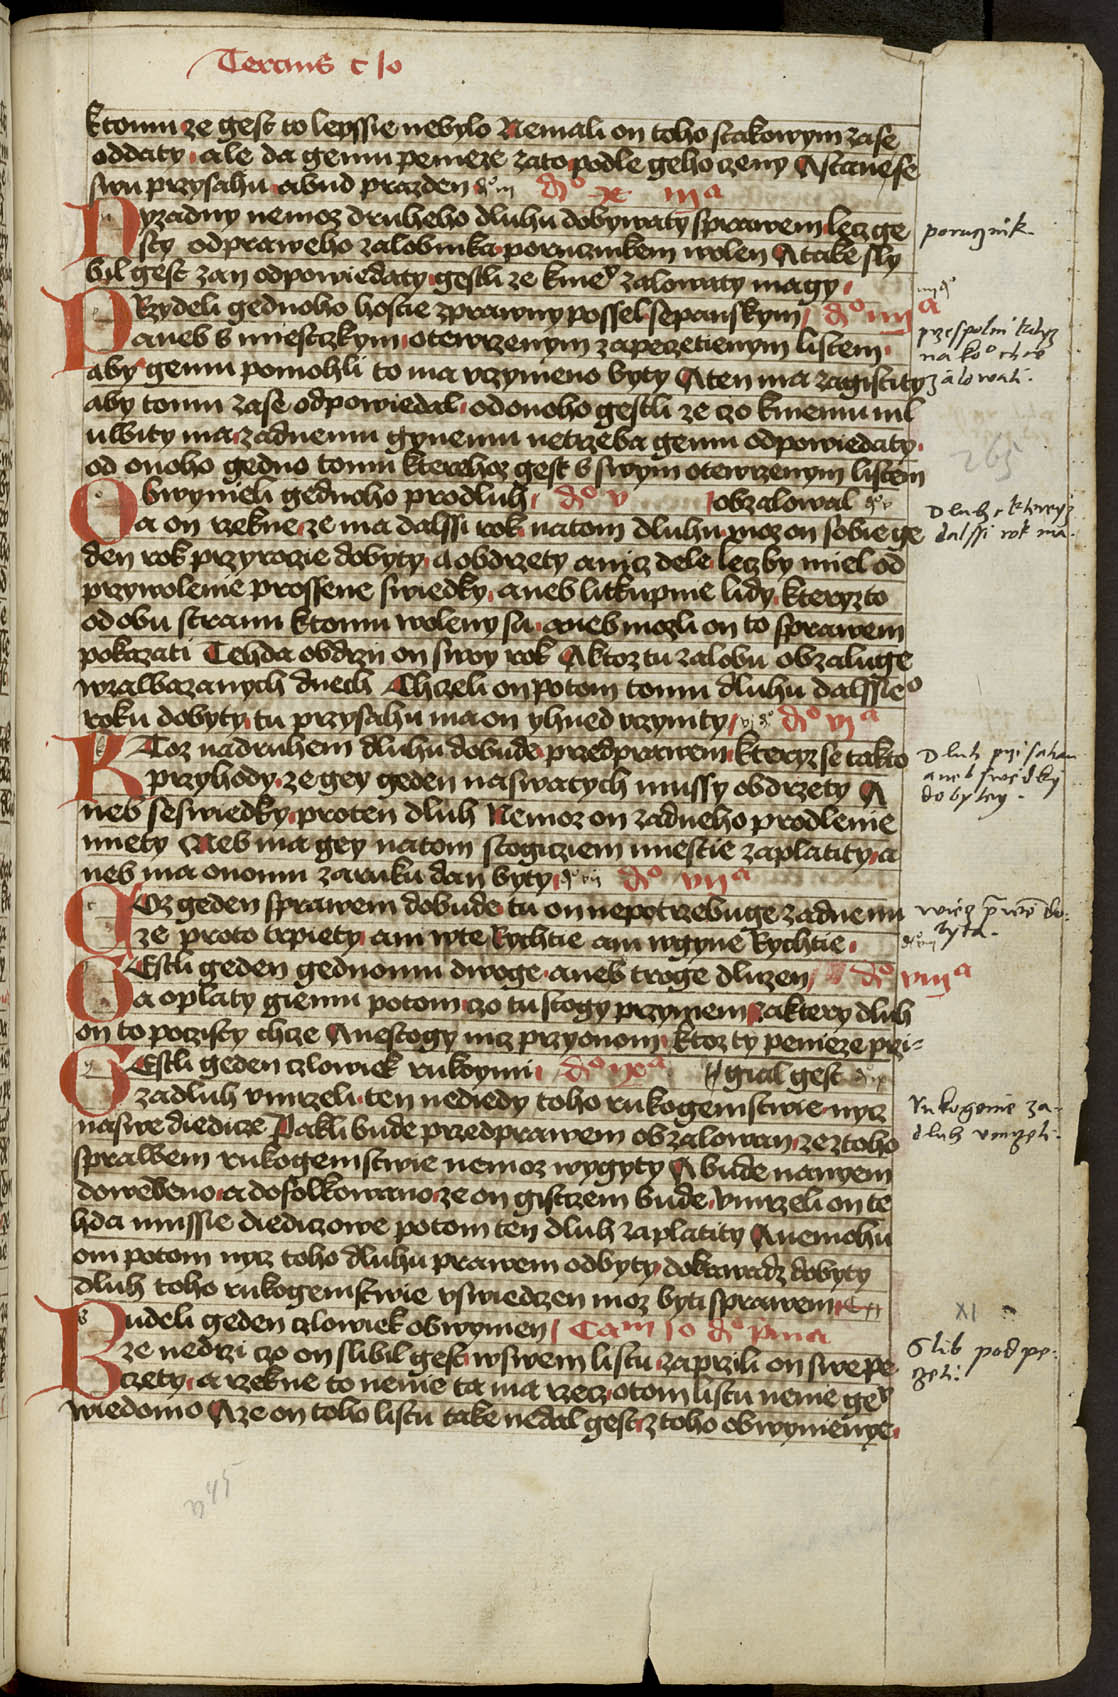 Tercius c 10
ktomu ze gest to lepssie nebylo Nemali on toho stakowym zase
oddaty ale da gemu penieze zato podle geho czeny A stane se
swu przysahu a bud prazden
Nyzadny nemoz druheho dluhu dobywaty sprawem lecz ge
sty od praweho zalobnika porucznikem wolen A take sly
bil gest zan odpowiedaty gestli ze kniem zalowaty magy
porucznik
Przydeli gednoho hoscie zprawny possel se panskym d° iiii a
aneb s miestczkym otewrzenym zapeczetienym listem
aby gemu pomohli to ma vczynieno byty A ten ma zagistity
zalowati
aby tomu zase odpowiedal od onoho gestli ze czo kniemu ml
uwity ma zadnemu gynemu netrzeba gemu odpowiedaty
od onoho gedno tomu kterehoz gest s swym otewrzenym listem
265
Obwynieli gednoho prodluh d° v obzalowal
a on rzekne ze ma dalssi rok natom dluhu moz on sobie ge
Dluh kteryz
dalssi rok ma
den rok przyrozie dobyty a obdrzety a nicz dele lecz by miel od
przywolenie prossene swiedky aneb litkupnie lidy kteryz to
od obu stranu ktomu woleny su aneb mozli on to sprawem
pokazati Tehda obdrzii on swoy rok A ktoz tu zalobu obzaluge
wzalbazanych dnech Chzeli on potom tomu dluhu dalssieo
roku dobyty tu przysahu ma on yhned vczynity d° vi a
Ktoz nadruhem dluhu dobude przedprawem kteryz se takto
przyhody ze gey geden naswatych mussy obdrzety A
neb seswiedky proten dluh Nemoz on zadneho prodlenie
Dluh przisahau
aneb swedky
dobyteg
miety Neb ma gey natom stogicziem miestie zaplatity a
neb ma onomu zaruku dan byty d° vii a
Coz geden sprawem dobude tu on nepotrzebuge zadnemu
ze proto trpiety ani wte Rychtie ani wgyne Rychtie
Gestli geden gednomu dwoge aneb troge dluzen d° viii a
a oplaty giemu potom czo tu stogy przyniem zaktery dluh
on to poczisty chcze A nestogy nicz przyonom ktoz ty penieze pri
Gestli geden czlowiek rukoymi d° ix a gial gest
zadluh vmrzeli ten nediedy toho rukogemstwie nycz
Rukogemie za
dluh vmrzeli
naswe diedicze Pakli bude przedprawem obzalowan ze ztoho
sprawem rukogemstwie nemoz wygyty A bude nanyem
dowedeno a dosolkowano ze on gistczem bude vmrzeli on te
hda mussie diediczowe potom ten dluh zaplatity A nemohu
oni potom nycz toho dluhu prawem odbyty dokawadz dobyty
dluh toho rukogemstwie vswiedczen moz byti sprawem
XI
Budeli geden czlowiek obwynien Cam 10 d° prima
ze nedrzi czo on slibil gest wswem listu zaprzili on swe pe
Slib podpe
czeti
czety a rzekne to nenie ta ma rzecz otom listu nenie ge
wiedomo A ze on toho listu take nedal gest ztoho obwynienye